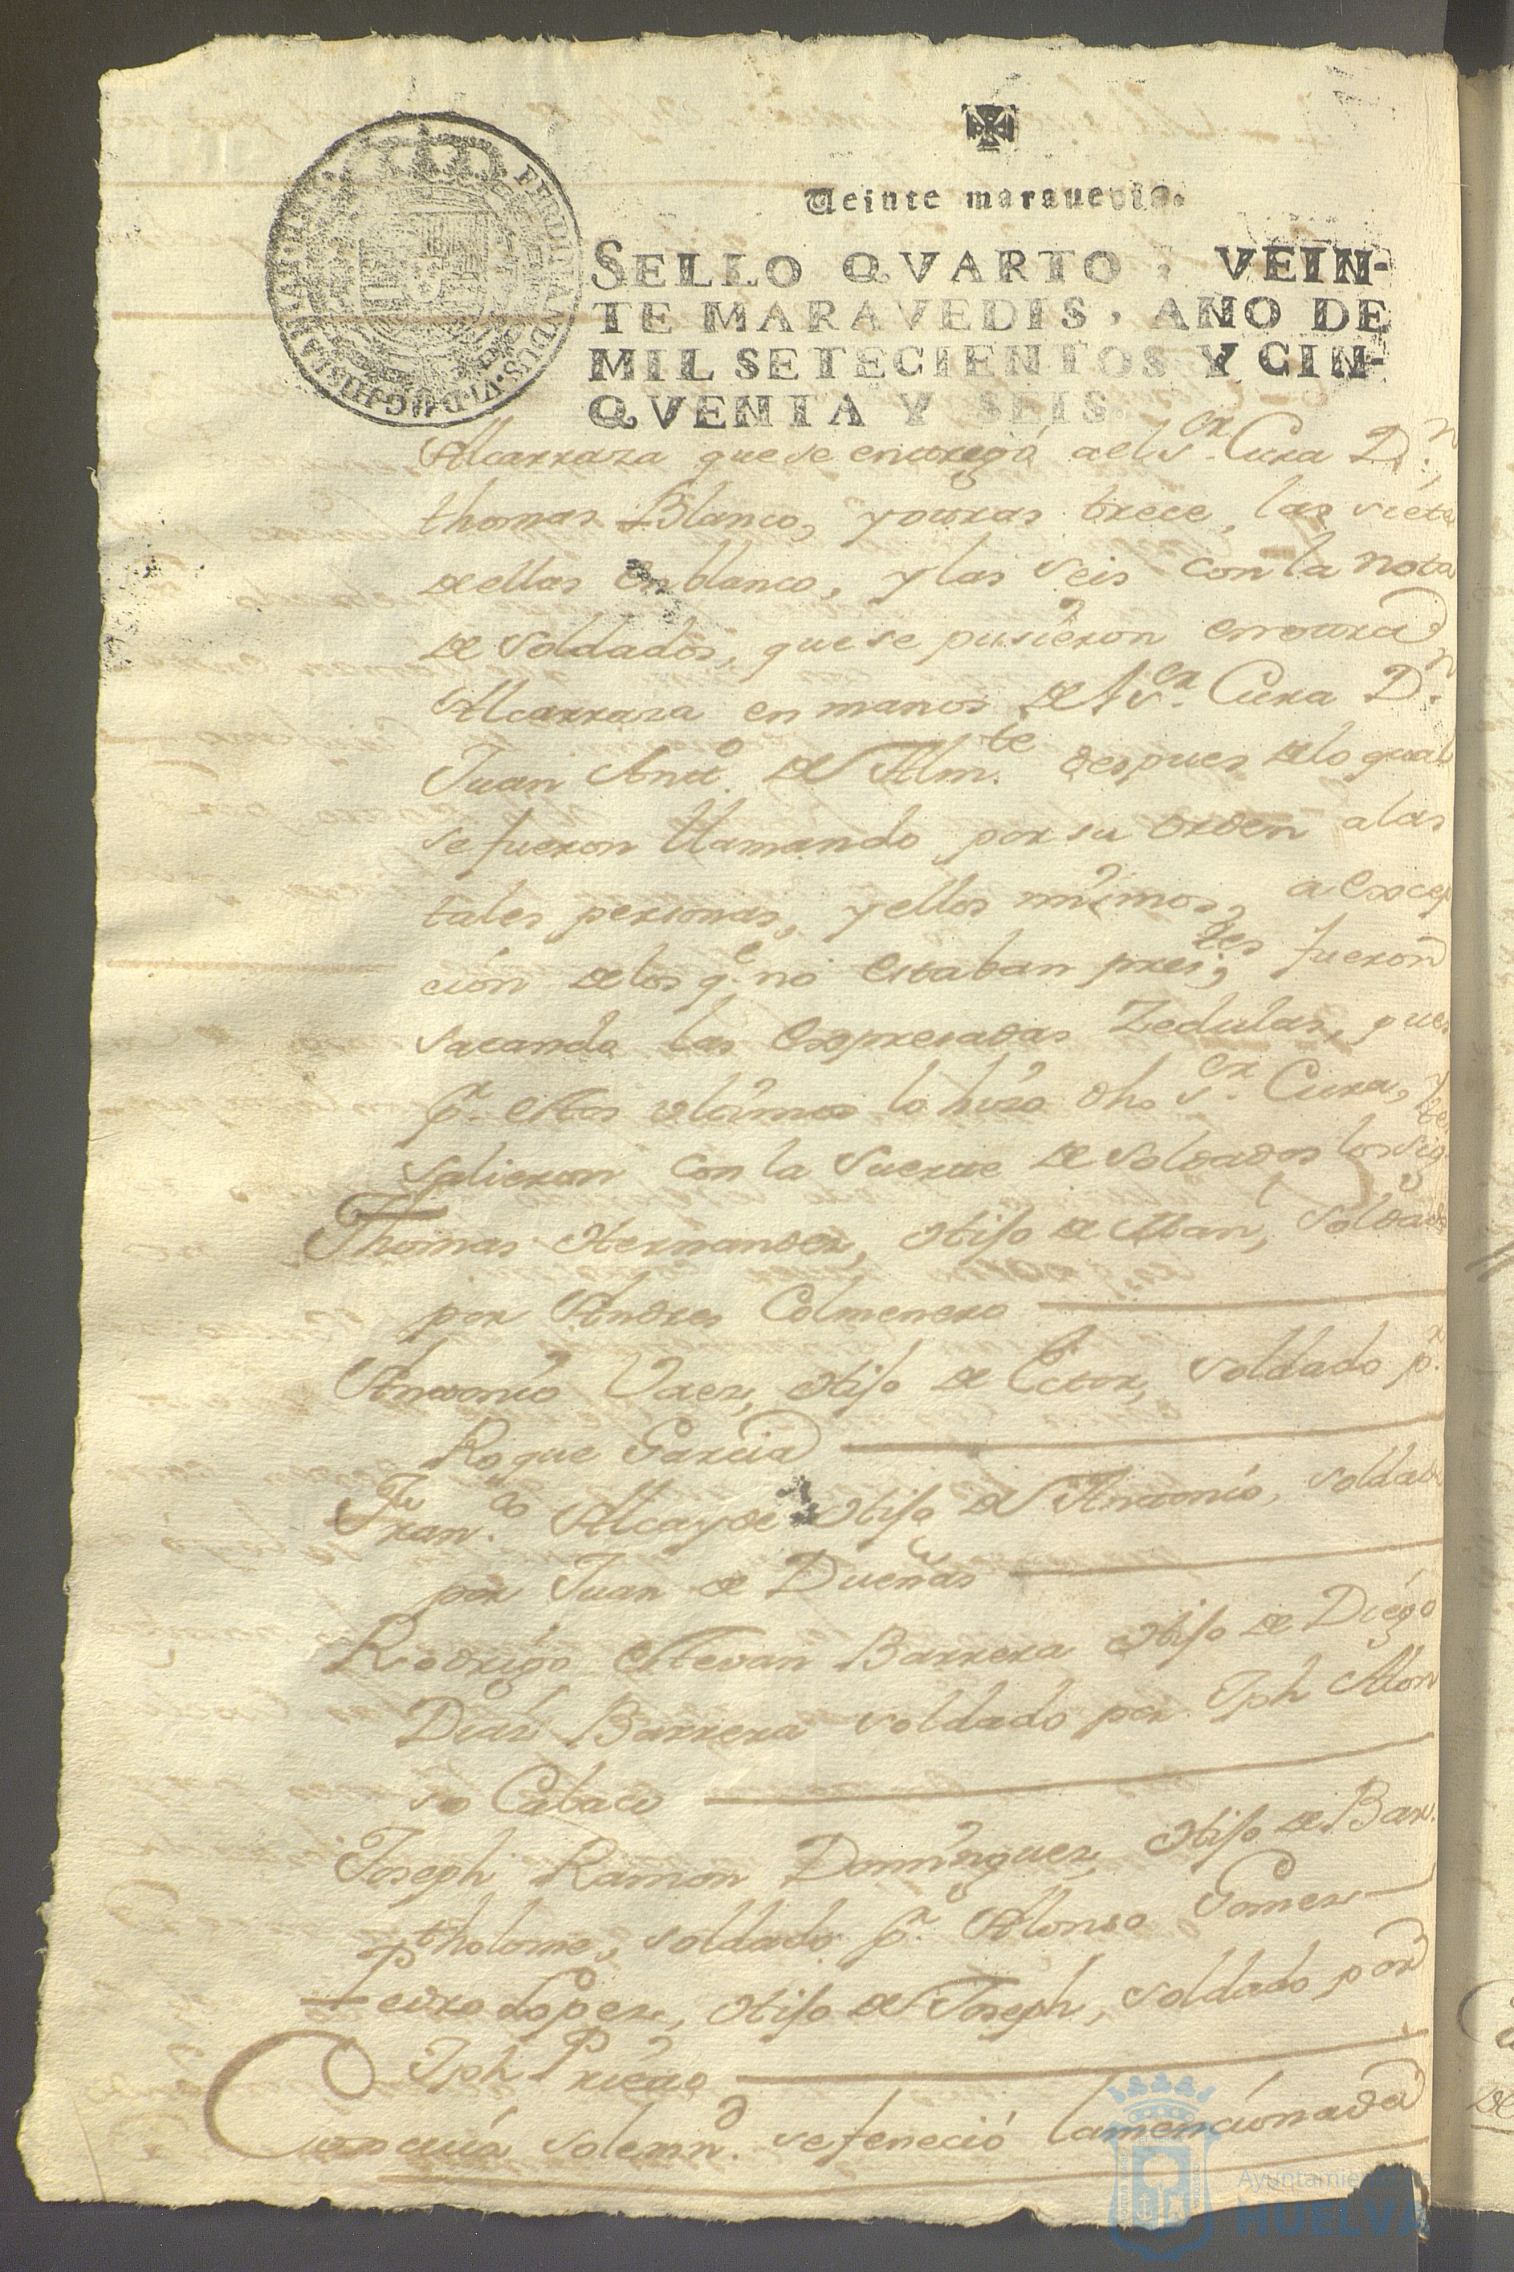 Veinte maravedis.
SELLO QVARTO, VEIN-
TE MARAVEDIS, AÑO DE
MIL SETECIENTOS Y CIN-
QVENTA Y SEIS.
FERDINANDUS.VI.D.G.HISPANIAR
Alcarraza que se entregó a el Sor. Cura Dn.
thomas Blanco, y otras trece, las siete
de ellas en blanco, y las seis con la nota
de soldados, que se pusieron en otra
Alcarraza en manos del Sor. Cura Dn.
Juan Anto. de Alm.te despues de lo qual
se fueron llamando por su orden a las
tales personas, y ellos mismos, a excep
cion de los qe. no estaban pres.tes fueron
sacando las expresadas Zedulas, pues
pr. estos ultimos lo hizo dho. Sor. Cura, y
salieron con la suerte de soldados los sig.tes
Thomas Hernandez, Hijo de Man.l, soldado
por Andres Colmenero
Antonio Vaez, Hijo de Ector, soldado pr.
Roque Garcia
Fran.co Alcayde Hijo de Antonio, soldado
por Juan de Dueñas
Rodrigo Estevan Barrera Hijo de Diego
Diaz Barrera soldado por Jph Alon
so Cabaco
Joseph Ramon Dominguez, Hijo de Bar.
tholome, soldado pr. Alonso Gomez
Pedro Lopez, Hijo de Joseph, soldado por
Jph Prieto
Con cuia solemnd. se feneció la mencionada
Ayuntamiento de
HUELVA